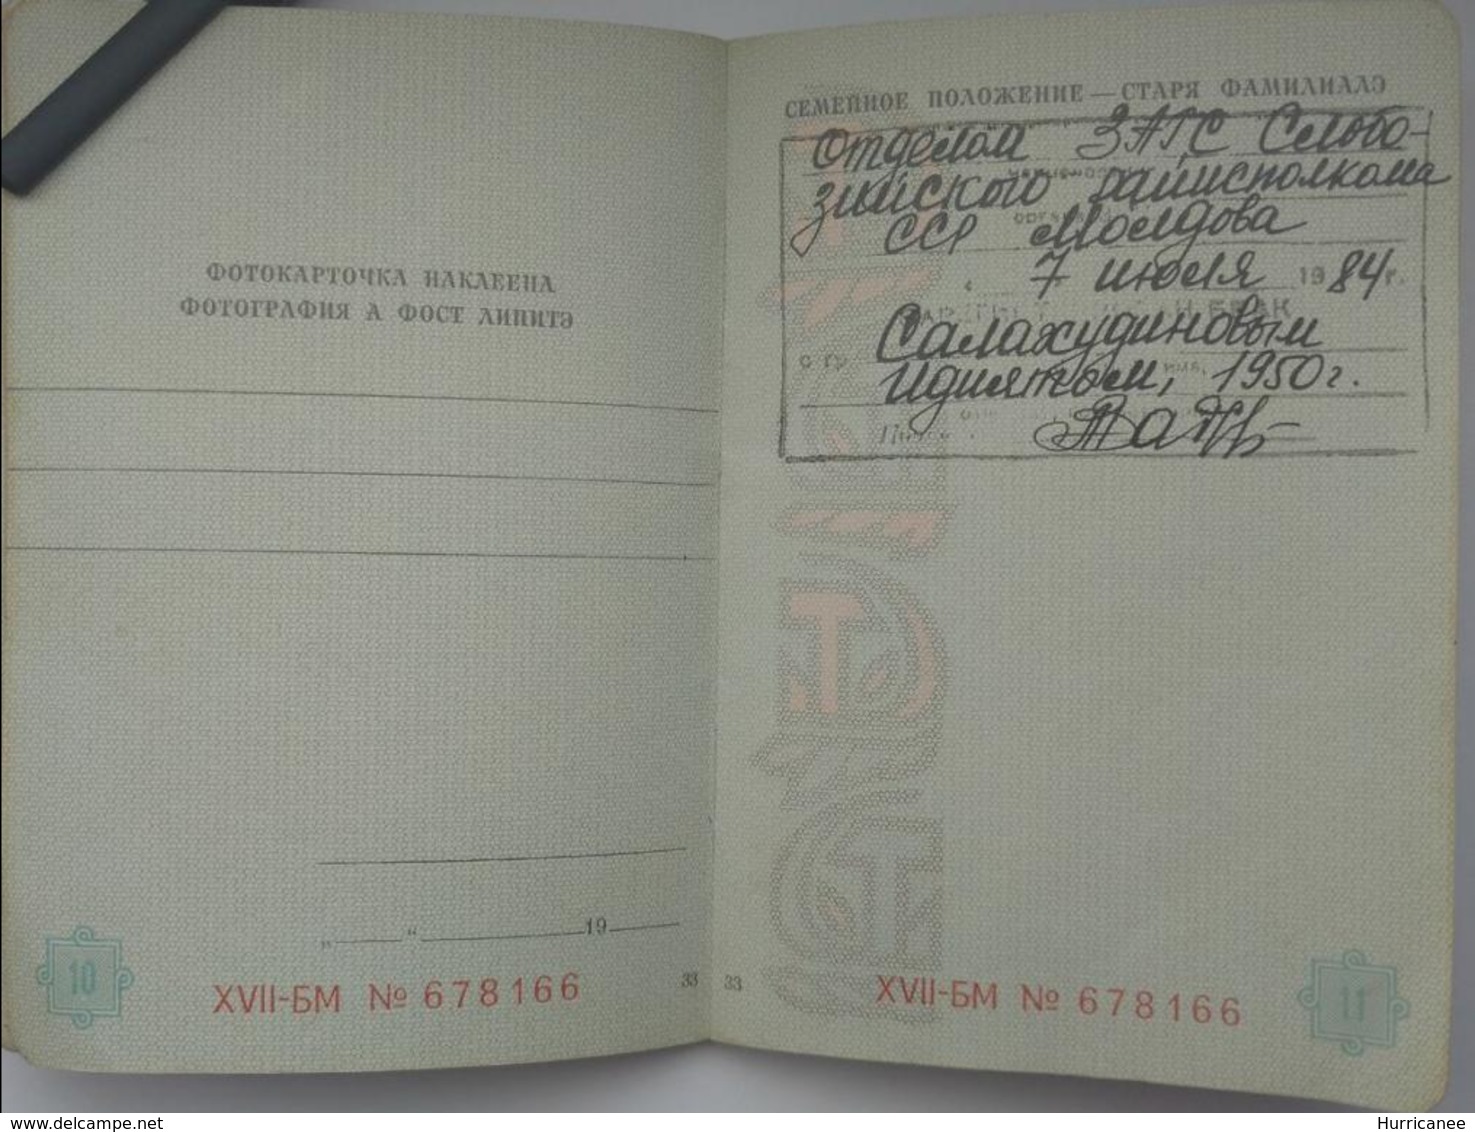 ФОТОКАРТОЧКА НАКЛЕЕНА
ФОТОГРАФИЯ А ФОСТ ЛИПИТЭ
„ “ 19
10
XVII-БМ № 678166
33
СЕМЕЙНОЕ ПОЛОЖЕНИЕ — СТАРЯ ФАМИЛИАЛЭ
Отделом ЗАГС Слобо-
зийского райисполкома
ССР Молдова
7 июля 1984 г.
с гр. Салахудиновым
Идиятом, 1950 г.
33
XVII-БМ № 678166
11
delcampe.net
Hurricanee